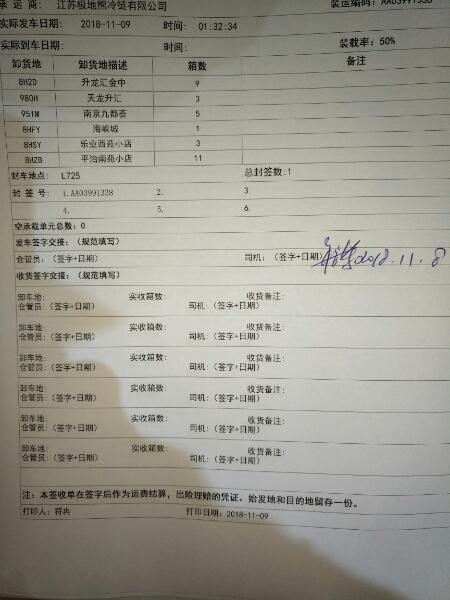 承 运 商: 江苏极地熊冷链有限公司 装运编码: AA03991338
实际发车日期: 2018-11-09 时间: 01:32:34
实际到车日期: 时间: 装载率: 50%
卸货地 卸货地描述 箱数 备注
8H2D 升龙汇金中 9
980H 天龙升汇 3
951N 南京九都荟 5
8HFY 海峡城 1
8HSY 乐业西苑小店 3
8HZB 平治南苑小店 11
封车地点: L725 总封签数:1
封 签 号: 1.AA03991338 2. 3.
4. 5. 6.
空承载单元总数: 0
发车签字交接: (规范填写)
仓管员: (签字+日期) 司机: (签字+日期) 2018.11.8
收货签字交接: (规范填写)
卸车地: 实收箱数: 收货备注:
仓管员: (签字+日期) 司机: (签字+日期)
卸车地: 实收箱数: 收货备注:
仓管员: (签字+日期) 司机: (签字+日期)
卸车地: 实收箱数: 收货备注:
仓管员: (签字+日期) 司机: (签字+日期)
卸车地: 实收箱数: 收货备注:
仓管员: (签字+日期) 司机: (签字+日期)
卸车地: 实收箱数: 收货备注:
仓管员: (签字+日期) 司机: (签字+日期)
卸车地: 实收箱数: 收货备注:
仓管员: (签字+日期) 司机: (签字+日期)
注: 本签收单在签字后作为运费结算, 出险理赔的凭证, 始发地和目的地留存一份。
打印人: 符冉 打印日期: 2018-11-09